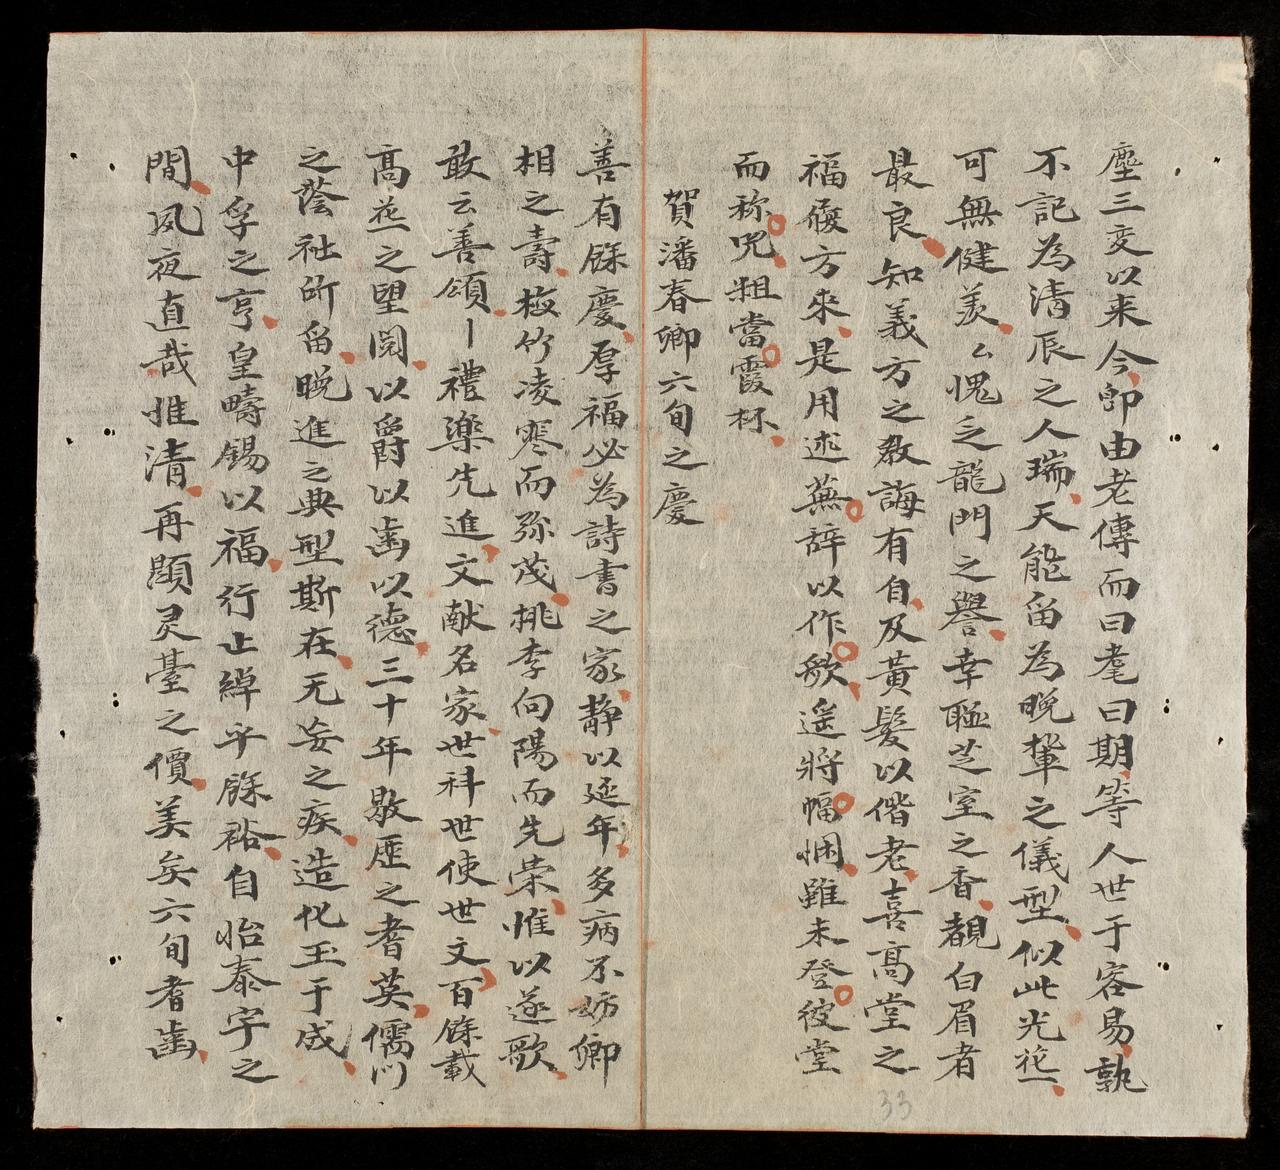 塵三変以来今即由老傳而曰耄曰期等人世于容易孰
不記為清辰之人瑞天能留為晩輩之儀型似此光花
可無健羨么愧乏龍門之譽幸聯芝室之香覩白眉者
最良知義方之教誨有自及黃髮以偕老喜高堂之
福履方來是用述蕪辞以作歌遥將幅悃雖未登彼堂
而称兕粗當霞杯
賀潘春卿六旬之慶
善有餘慶厚福必為詩書之家静以延年多病不妨卿
相之壽梅竹凌寒而弥茂桃李向陽而先荣惟以遂歌
敢云善頌丨禮樂先進文献名家世科世使世文百餘載
高花之望閥以爵以齒以德三十年歇座之耆英儒门
之蔭社所留晩進之典型斯在无妄之疾造化玉于成
中孚之亨皇疇錫以福行止綽乎餘裕自怡泰宇之
間夙夜直哉惟清再顕灵臺之價美矣六旬耆齒
33